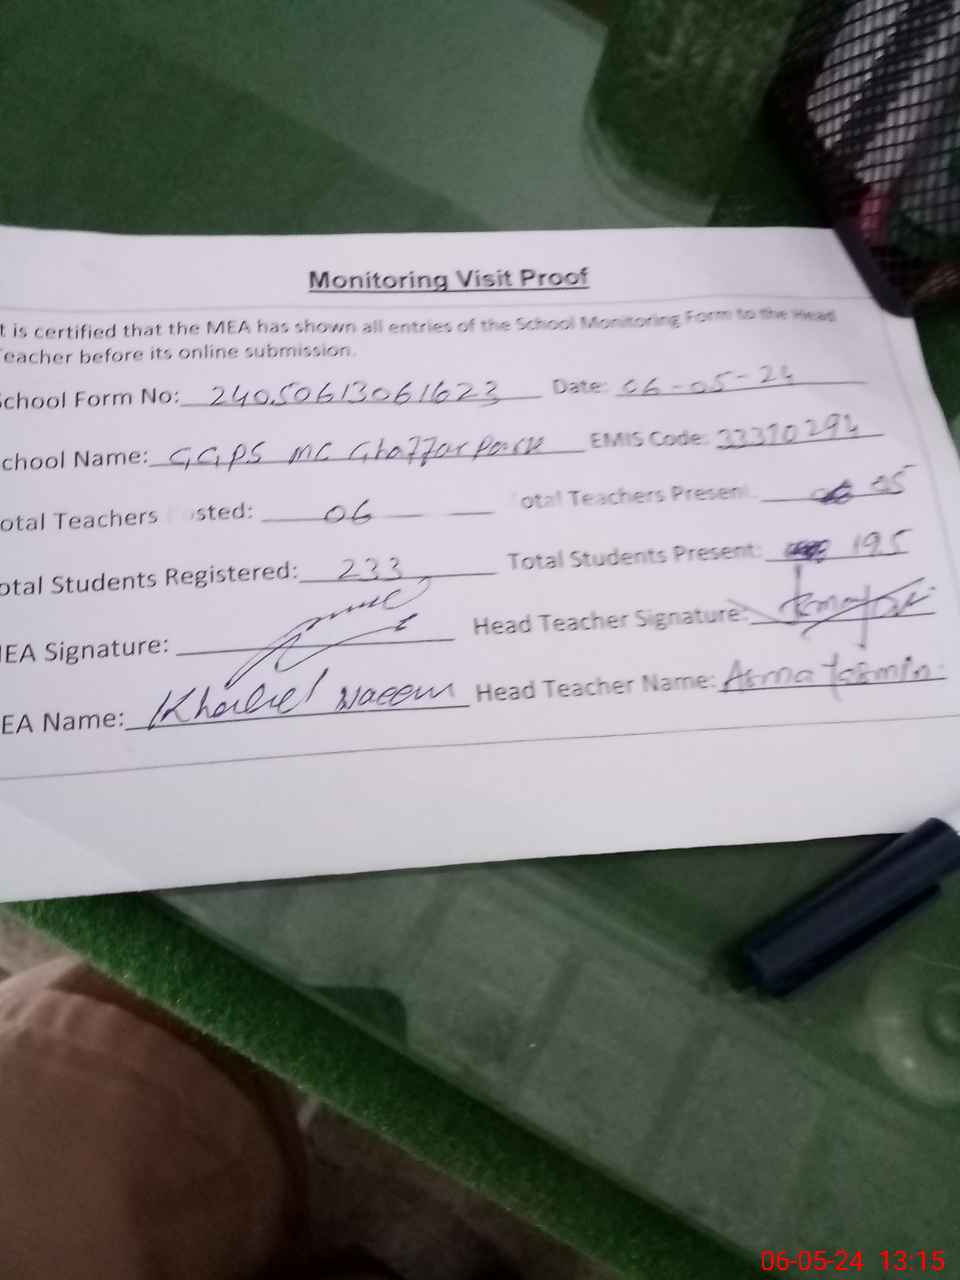 Monitoring Visit Proof
t is certified that the MEA has shown all entries of the School Monitoring Form to the Head
Teacher before its online submission.
School Form No: 24050613061623 Date: 06-05-24
chool Name: GGPS MC Ghaffar Park EMIS Code: 33310294
otal Teachers sted: 06 otal Teachers Present: 05
otal Students Registered: 233 Total Students Present: 195
MEA Signature: Head Teacher Signature:
EA Name: Naeem Head Teacher Name: Asma Yasmin
06-05-24 13:15